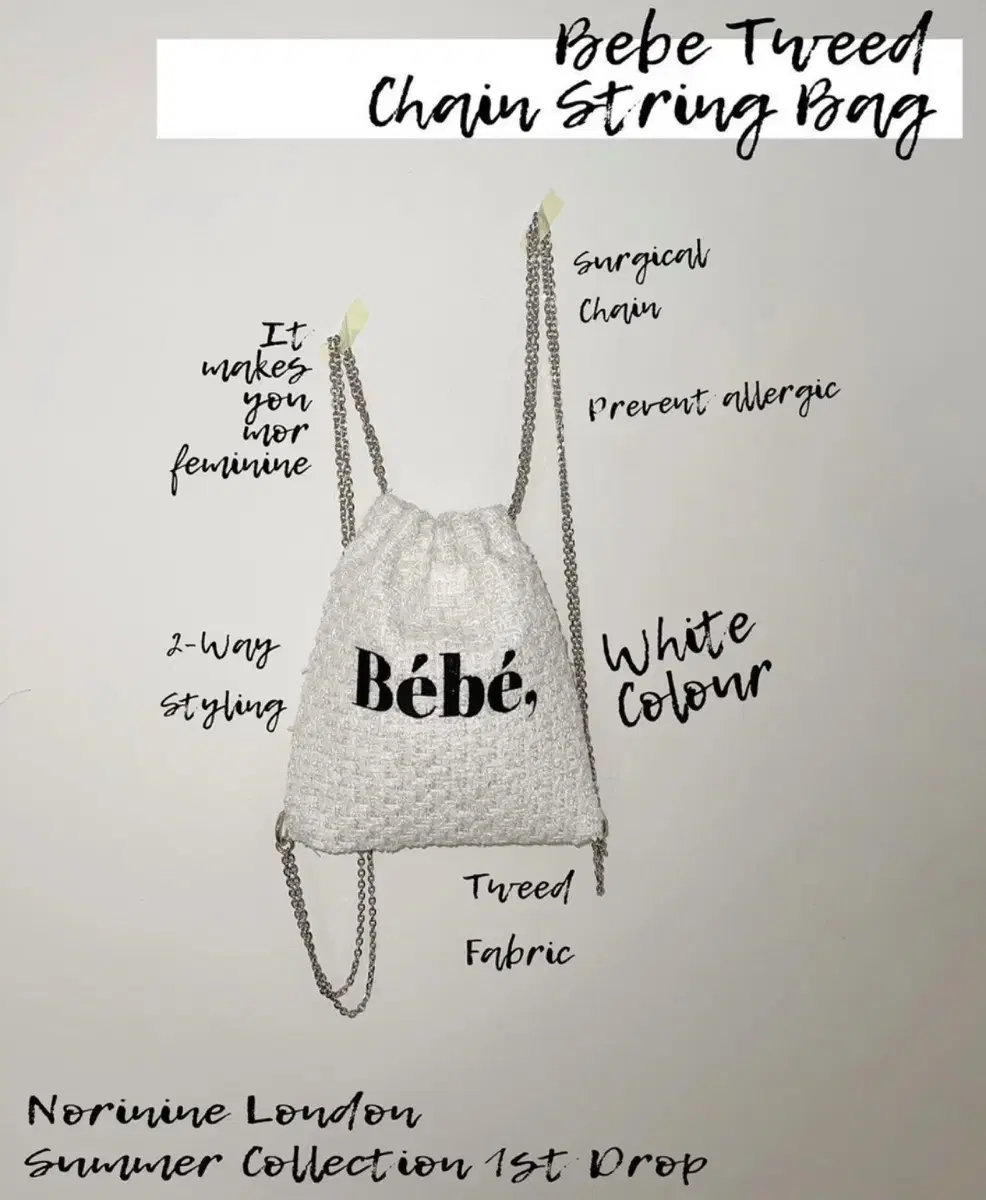 Bebe Tweed
Chain String Bag
Surgical
Chain
Prevent allergic
It
makes
you
mor
feminine
2-Way
Styling
Bébé,
White
Colour
Tweed
Fabric
Norinine London
Summer Collection 1st Drop